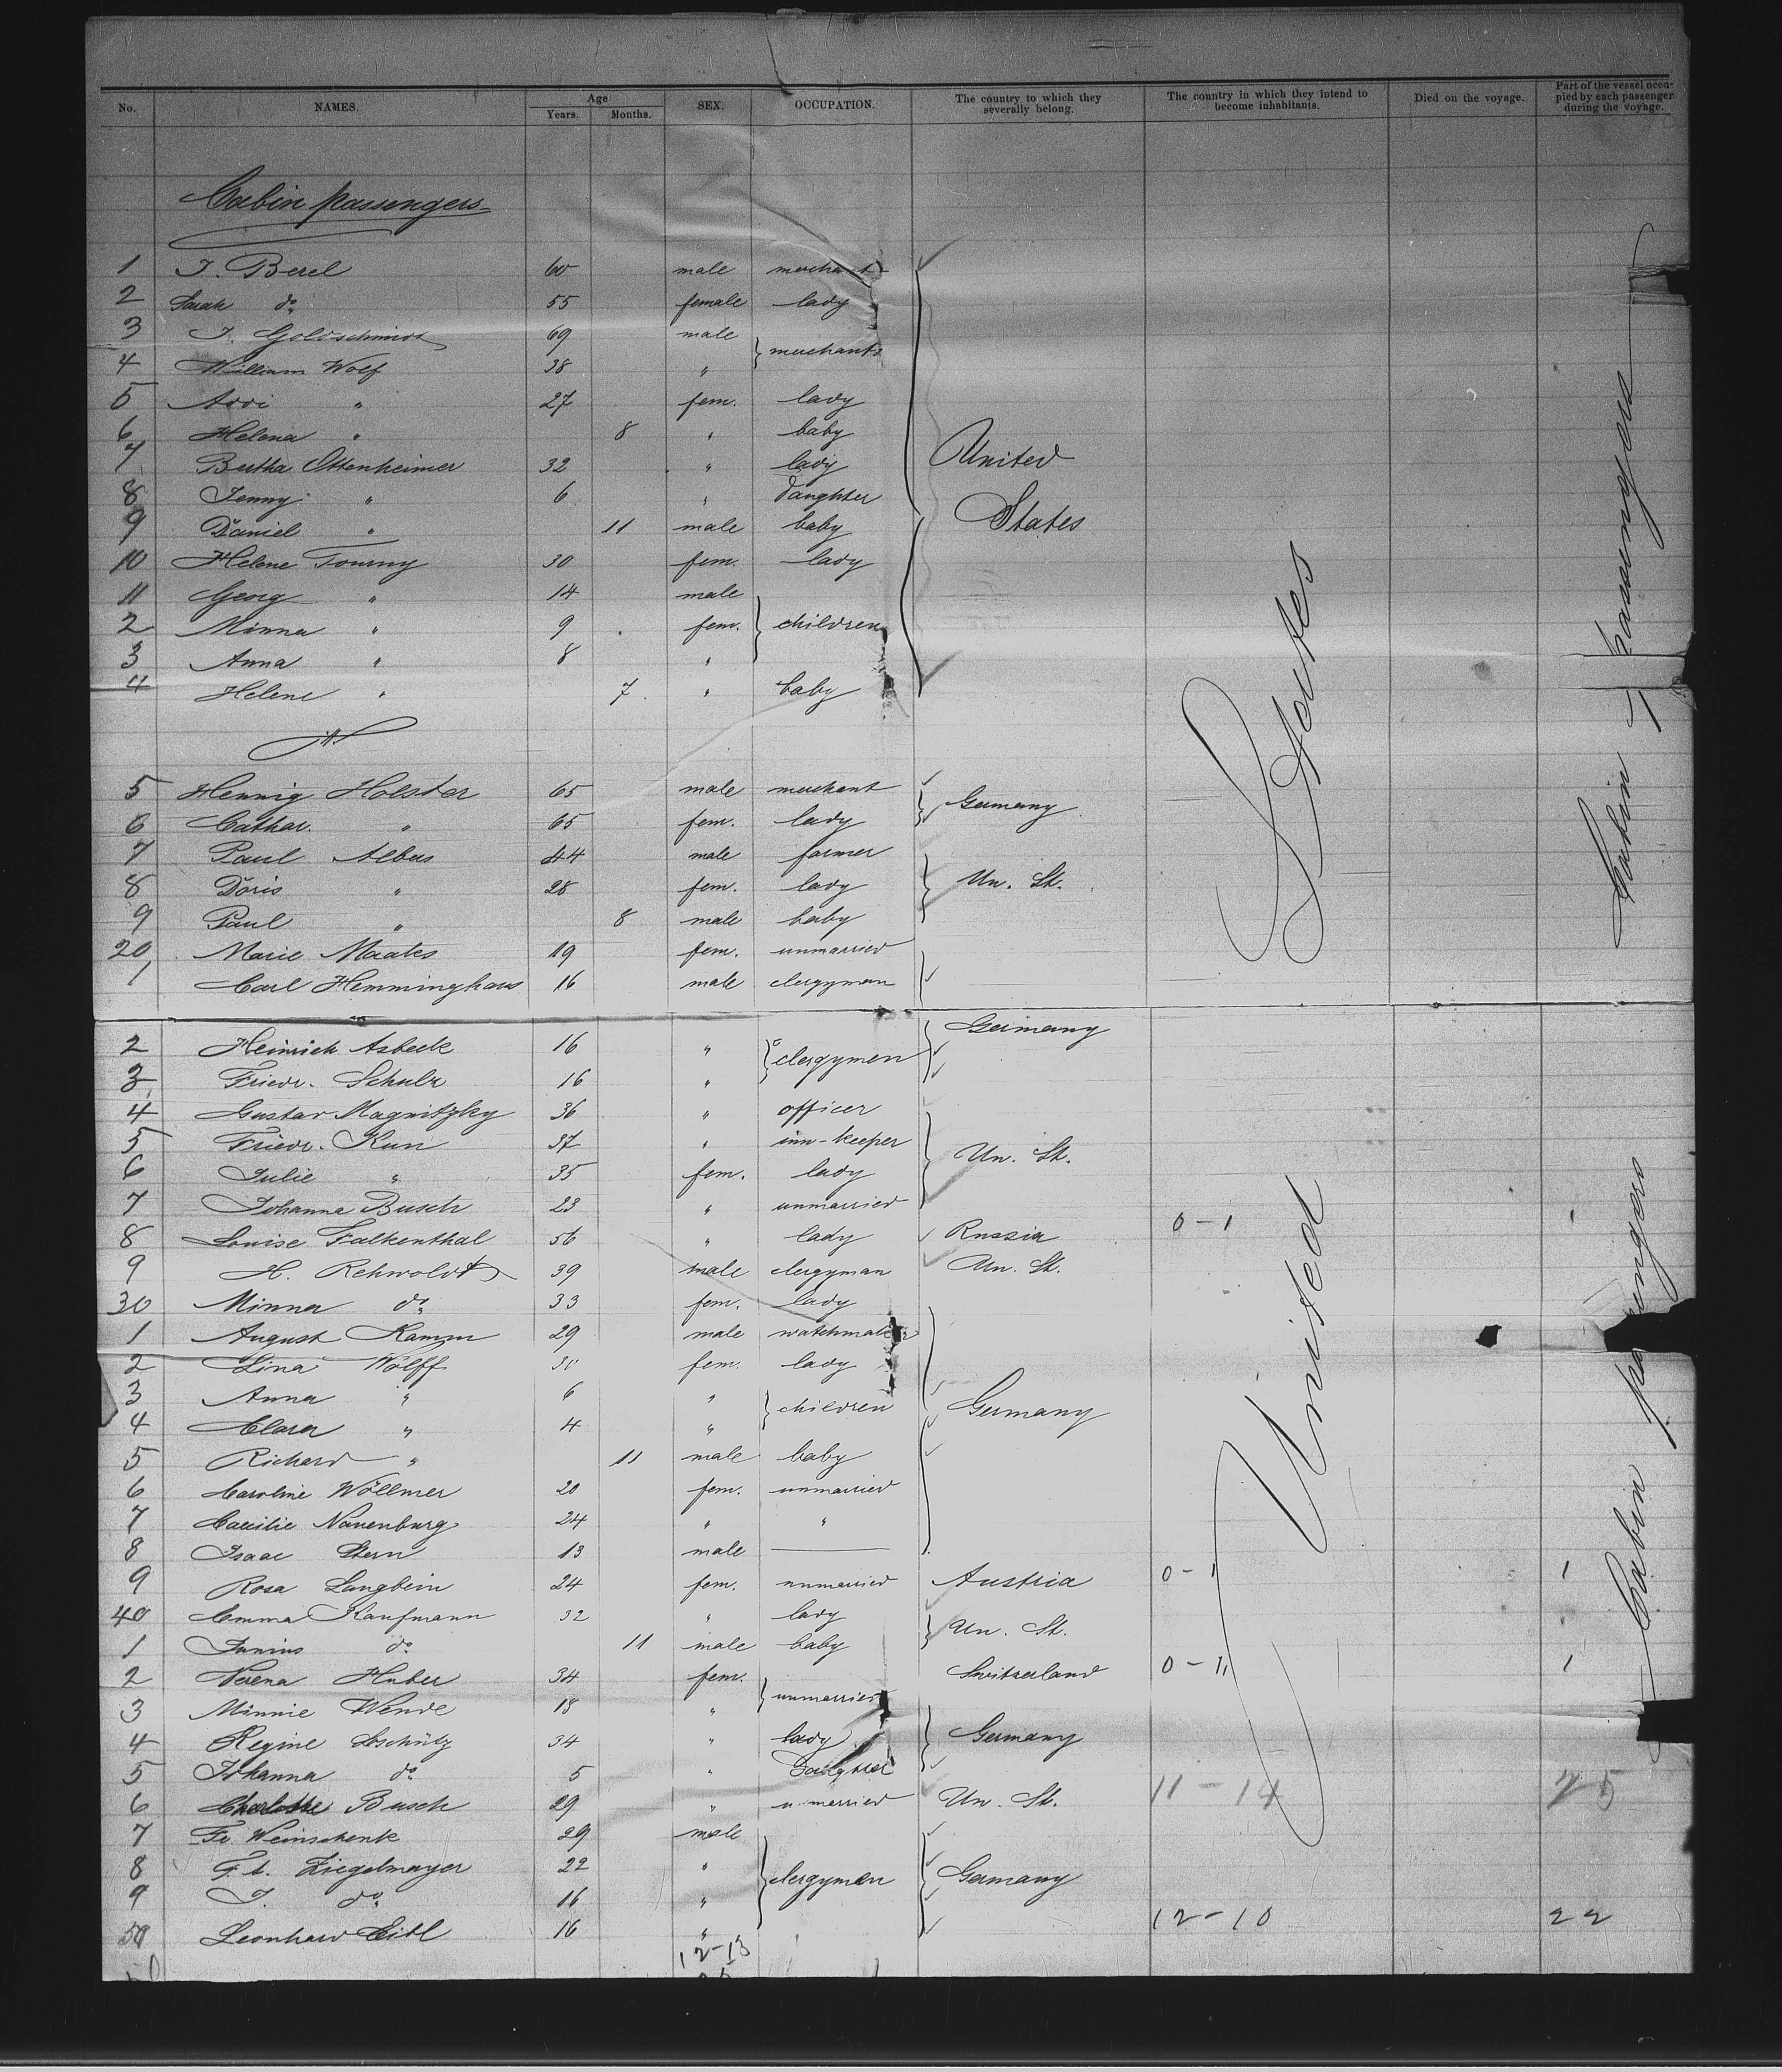 No. NAMES. Age Years. Months. SEX. OCCUPATION. The country to which they severally belong. The country in which they intend to become inhabitants. Died on the voyage. Part of the vessel occupied by each passenger during the voyage.
Cabin passengers
1 J. Berel 60 male merchant
2 Sarah do. 55 female lady
3 J. Goldschmidt 69 male
merchants
4 William Wolf 38 "
5 Addi " 27 fem. lady
6 Helena " 8 " baby
7 Bertha Ottenheimer 32 " lady United
8 Jenny " 6 " daughter
9 Daniel " 11 male baby States
10 Helene Tourny 30 fem. lady
11 Georg " 14 male
2 Minna " 9 fem. children
3 Anna " 8 "
4 Helene " 7 " baby
5 Hennig Holster 65 male merchant Germany
6 Cathar. " 65 fem. lady
7 Paul Albus 44 male farmer
8 Doris " 28 fem. lady Un. St.
9 Paul " 8 male baby
20 Marie Maates 19 fem. unmarried
1 Carl Hemminghaus 16 male clergyman
Germany
2 Heinrich Asbeck 16 " clergymen
3 Friedr. Schulz 16 "
4 Gustav Magnitzky 36 " officer
5 Friedr. Kun 37 " inn-keeper Un. St.
6 Julie " 35 fem. lady
7 Johanna Busch 23 " unmarried
8 Louise Falkenthal 56 " lady Russia 0-1 1
9 H. Rehwoldt 39 male clergyman Un. St.
30 Minna do. 33 fem. lady
1 August Kamm 29 male watchmaker
2 Lina Wolff 30 fem. lady
3 Anna " 6 " children Germany
4 Clara " 4 "
5 Richard " 11 male baby
6 Caroline Wöllmer 20 fem. unmarried
7 Caecilie Nauenburg 24 " "
8 Isaac Stern 13 male
9 Rosa Langbein 24 fem. unmarried Austria 0-1 1
40 Emma Kaufmann 32 " lady Un. St.
1 Junius do. 11 male baby
2 Verena Huber 34 fem. Switzerland 0-1 1
unmarried
3 Minnie Wende 18 "
4 Regine 34 " lady Germany
5 Johanna do. 5 " daughter
6 Charlotte Busch 29 " unmarried Un. St. 11-14 25
7 Fr. Weinschenk 29 male
8 F. A. Ziegelmayer 22 " clergymen Germany
9 J. do. 16 "
50 Leonhard 16 " 12-10 22
12-13
United States
Cabin passengers
Cabin passengers